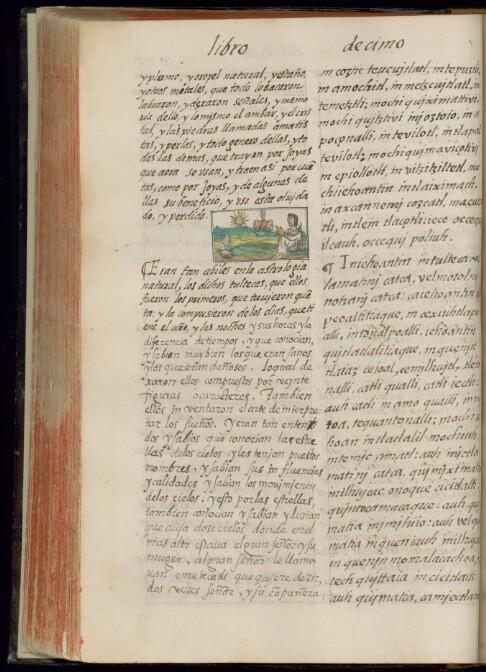 libro decimo
y plomo, y oropel natural, y estaño,
y otros metales, que todo lo sacaron
labraron, y dexaron señales, y memo
ria dello, y lo mismo el ambar, y el cris
tal, y las piedras llamadas amatis
tas, y perlas, y todo genero dellas, y to
das las demas, que trayan por joyas
que aora se vsan, y traen asi por cuẽ
tas, como por joyas, y de algunas de
llas su beneficio, y vso esta oluida
do, y perdido.
¶ Eran tan abiles en la astrologia
natural, los dichos tultecas, que ellos
fueron los primeros, que tuuieron quẽ
ta: y la compusieron de los dias, que ti
ene el año, y las noches y sus horas y la
diferencia de tiempos, y que conocian,
y sabian muy bien los que eran sanos
y los que eran dañosos. lo qual de
xaron ellos compuestos por veynte
figuras o caracteres. Tambien
ellos inventaron el arte de interpre
tar los sueños. Y eran tan entendi
dos y sabios que conocian las estre
llas de los cielos y les tenian puestos
nombres, y sabian sus influencias
y calidades y sabian los mouimientos
de los cielos: y esto por las estrellas,
tambien conocian y sabian y dezian
que auia doze cielos donde en el
mas alto estaua el gran señor y su
muger, al gran señor le llama
uan ometecutli que quiere dezir,
dos vezes señor, y su compañera
in coztic teucujtlatl, in tepuztli,
in amochitl, in metzcujtlatl, in
temetztli; mochi qujximattivi,
mochi qujtztivi injostoio, in a
poçonalli, in tevilotl, in tlapal
tevilotl; mochi qujmavicotivi
in epiollotl, in vitzitziltetl, mo
chi iehoantin
in axcan nemj cozcatl, macuex
tli, in tlein tlaçotli: iece occequj
ilcauh, occequj poliuh.
¶ Iniehoantin in tulteca
lamatinj catca, vel motolnj
notzanj catca: ca iehoantin
pecaltitiaque, in cexiuhtlapo
alli, in tonalpoalli, iehoantin
qujtlalitiaque, in quenjn
in ceioal, cemjlhujtl,
nalli, catli qualli, catli iectli:
auh catli in amo qualli, in mj
toa, tequantonalli; mochi ie
hoan intlatlalil mochiuh,
in temjc amatl: auh injc tla
matinj catca, qujximatia in
ilhujcac onoque cicitlalti,
qujntocamacaque: auh quj
matia injmjhiio: auh vel quj
matia in quenjn iauh ilhujcatl
in quenjn momalacachoa,
tech qujttaia in cicitlalti:
auh qujmatia, ca mjectlamã